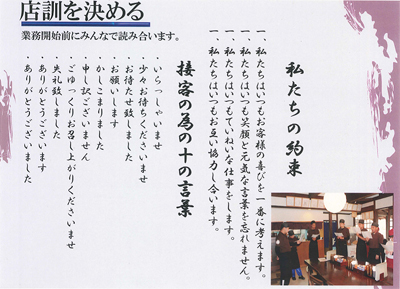 店訓を決める
業務開始前にみんなで読み合います。
私たちの約束
一、私たちはいつもお客様の喜びを一番に考えます。
一、私たちはいつも笑顔と元気な言葉を忘れません。
一、私たちはいつもていねいな仕事をします。
一、私たちはいつもお互い協力し合います。
接客の為の十の言葉
・いらっしゃいませ
・少々お待ちくださいませ
・お待たせ致しました
・お願いします
・かしこまりました
・申し訳ございません
・ごゆっくりお召し上がりくださいませ
・失礼致しました
・ありがとうございます
・ありがとうございました